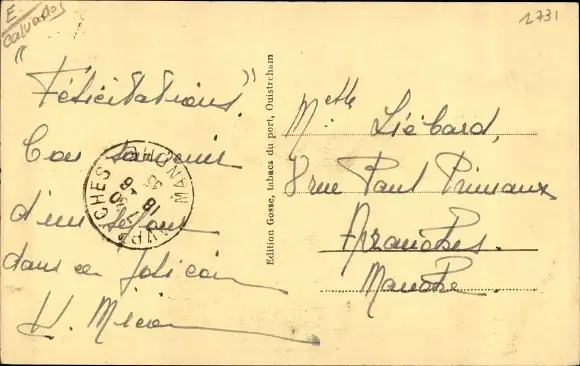 E.
Calvados
1731
"Félicitations."
Bon souvenir
d'un séjour
dans ce joli coin
Edition Gosse, tabacs du port, Ouistreham
Melle Liébard,
8 rue Paul
Avranches.
Manche.
AVRANCHES
MANCHE
18 -8
35